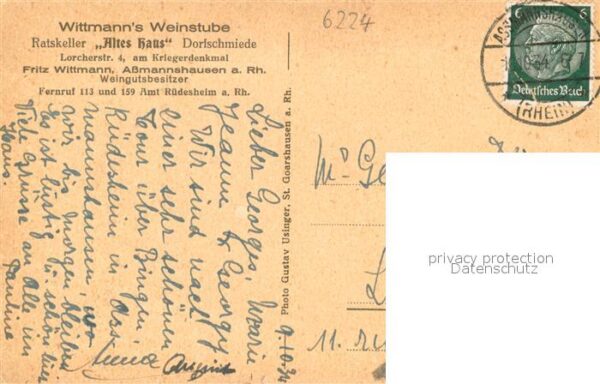 Wittmann's Weinstube
Ratskeller „Altes Haus" Dorfschmiede
Lorcherstr. 4, am Kriegerdenkmal
Fritz Wittmann, Aßmannshausen a. Rh.
Weingutsbesitzer
Fernruf 113 und 159 Amt Rüdesheim a. Rh.
6224
9.10.34
Lieber Georges, Marie
Jeanny & Georgy
Wir sind nach
einer sehr schönen
Tour über Bingen
Rüdesheim in Ass-
mannshausen, wo
wir bis morgen bleiben
Es ist lustig & schön hier
Viele Grüsse an Alle im
Haus.
Pauline
Anna
Photo Gustav Usinger, St. Goarshausen a. Rh.
6
Deutsches Reich
(RHEIN)
11. rue
privacy protection
Datenschutz